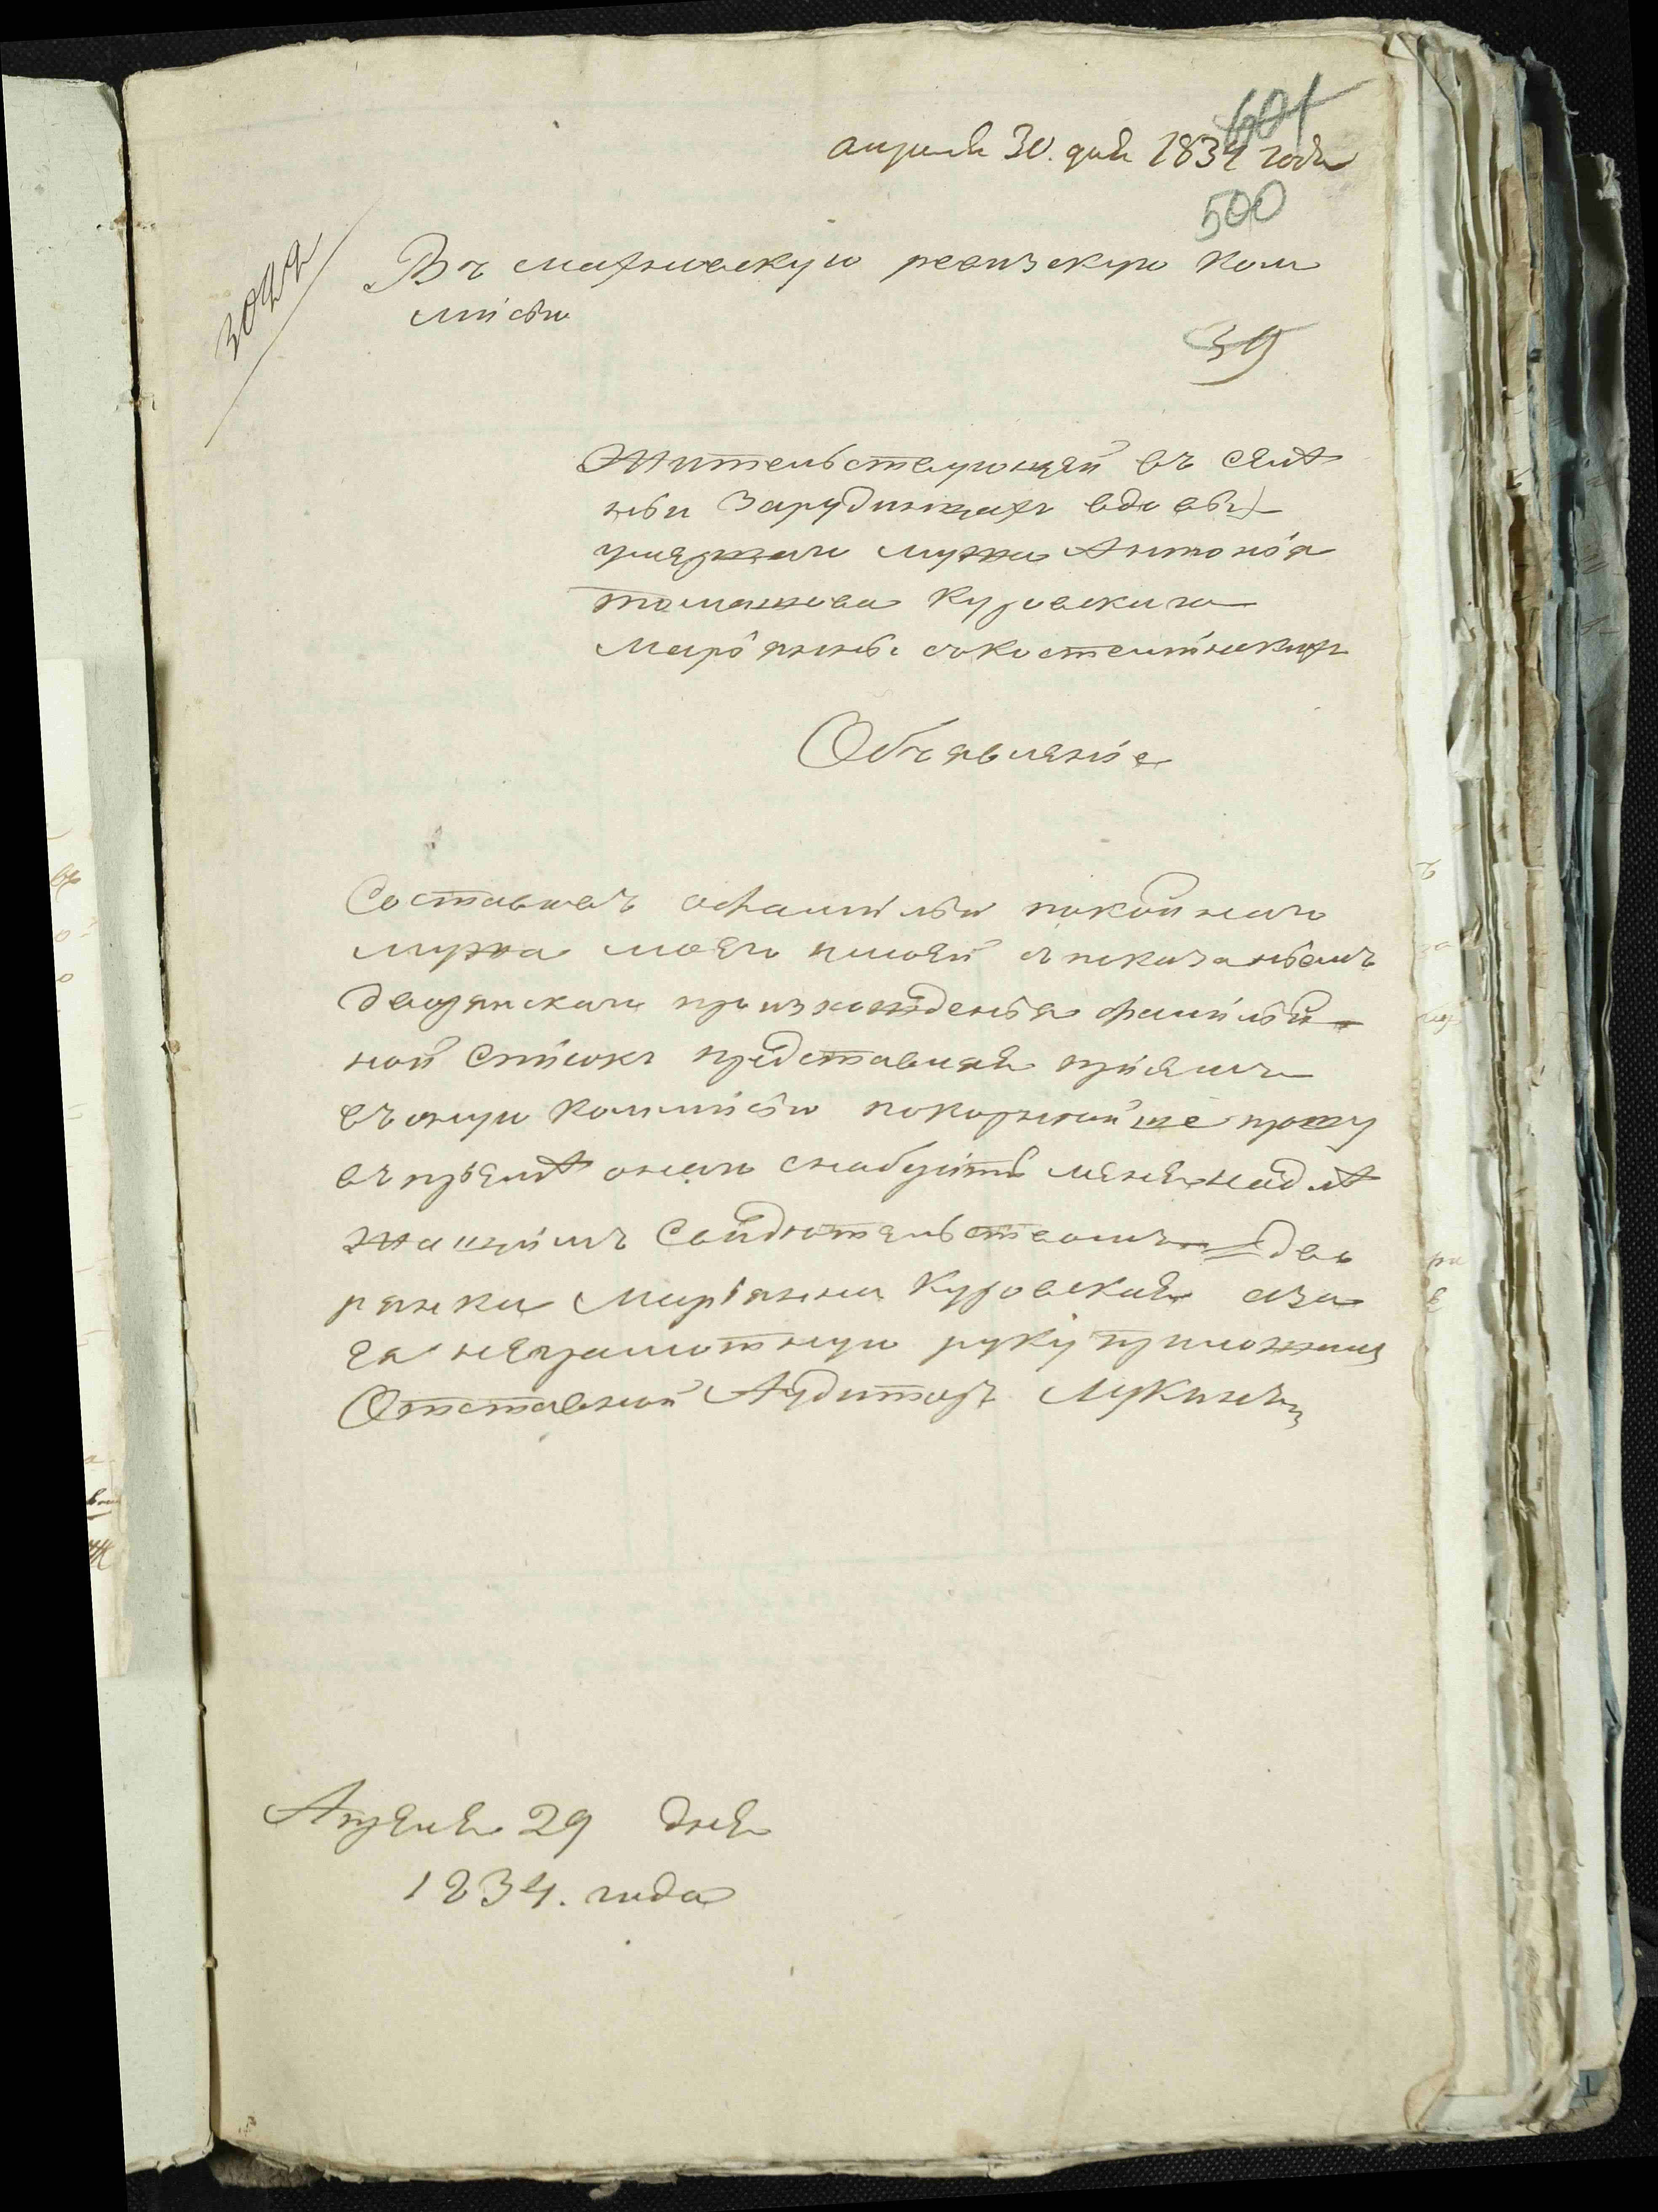 601
апреля 30. дня 1834 года
500
3044
Въ махновскую ревизскую ком
мисію
39
Жительствующей въ селе
ньи Зарудинцахъ вдовы
умерзшаго мужа Антонія
томашова Куровскаго
Маріянны
Объявленіе
Составивъ офамиліи покойнаго
мужа моего имоей съ показаніемъ
дворянскаго произхожденія фамилій
ной списокъ представляя приемъ
въоную коммисію покорнѣйше прошу
въпріемѣ онаго снабдить меня надле
жащимъ Свидетельствомъ Дво
рянка Маріянна Куровская азъ
ея неграмотную руку приложилъ
Отставной Аудиторъ Лукинъ
Апреля 29 дня
1834. года